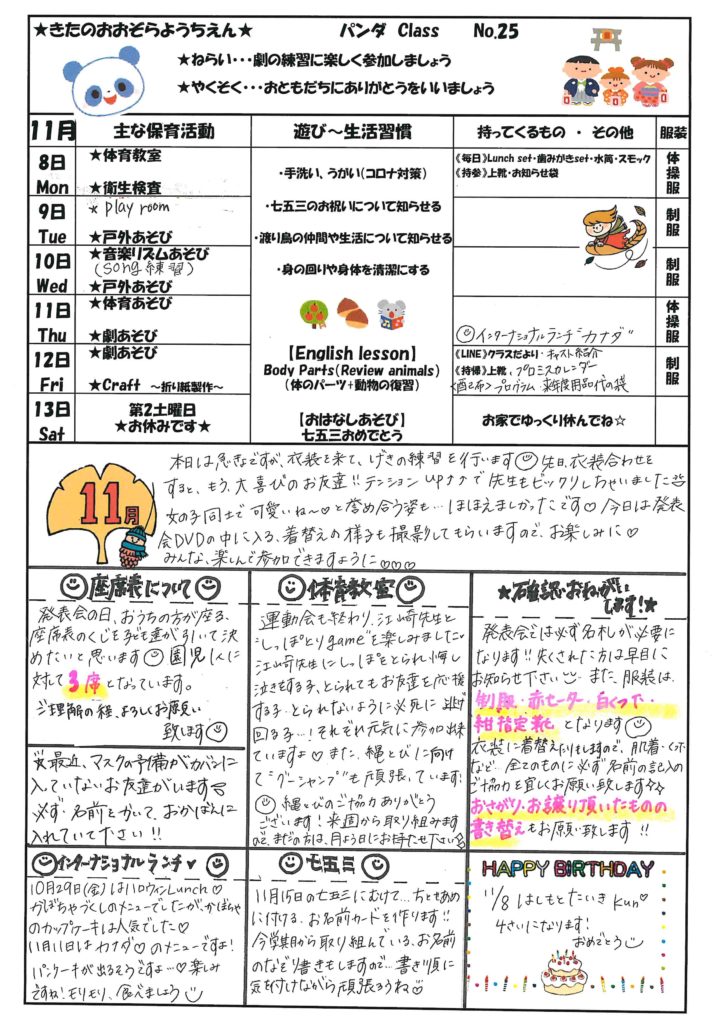 ★きたのおおぞらようちえん★ パンダ Class No.25
★ねらい・・・劇の練習に楽しく参加しましょう
★やくそく・・・おともだちにありがとうをいいましょう
11月 主な保育活動 遊び～生活習慣 持ってくるもの ・ その他 服装
8日 Mon
★体育教室
★衛生検査
9日 Tue
★ Play room
★戸外あそび
10日 Wed
★音楽リズムあそび
(song 練習)
★戸外あそび
11日 Thu
★体育あそび
★劇あそび
12日 Fri
★劇あそび
★Craft ～折り紙製作～
13日 Sat
第2土曜日
★お休みです★
・手洗い、うがい(コロナ対策)
・七五三のお祝いについて知らせる
・渡り鳥の仲間や生活について知らせる
・身の回りや身体を清潔にする
【English lesson】
Body Parts(Review animals)
(体のパーツ+動物の復習)
【おはなしあそび】
七五三おめでとう
《毎日》Lunch set・歯みがきset・水筒・スモック
《持参》上靴・お知らせ袋
インターナショナルランチ"カナダ"
《LINE》クラスだより・キャスト紹介
《持帰》上靴、プロミスカレンダー
《配布》プログラム・来年度用品代の袋
お家でゆっくり休んでね☆
体操服
制服
制服
体操服
制服
11月
本日は急きょですが、衣装を来て、げきの練習を行います 先日、衣装合わせを
すると、もう、大喜びのお友達!!テンションup↑↑で先生もビックリしちゃいました
女の子同士で可愛いね〜♡と誉め合う姿も…ほほえましかったです♡今日は発表
会DVDの中に入る、着替えの様子も撮影してもらいますので、お楽しみに♡
みんな、楽しんで参加できますように♡♡♡
座席表について
発表会の日、おうちの方が座る、
座席表のくじを子ども達が引いて決
めたいと思います 園児1人に
対して3席となっています。
ご理解の程、よろしくお願い
致します
☆最近、マスクの予備がカバンに
入っていないお友達がいます
必ず、名前をかいて、おかばんに
入れていて下さい!!
体育教室
運動会も終わり、江﨑先生と
"しっぽとりgame"を楽しみました♡
江﨑先生にしっぽをとられ、悔し
泣きをする子、とられてもお友達を応援
する子…とられないように必死に逃げ
回る子…!それぞれ元気に参加出来
ていますよ♡また、縄とびに向けて
"グージャンプ"も頑張っています!
縄とびのご協力ありがとう
ございます!来週から取り組みます
ので、まだの方は、月よう日にお持たせ下さい
★確認・おねがい
します!★
発表会では必ず名札が必要に
なります!!失くされた方は早目に
お知らせ下さい また、服装は、
制服・赤セーター・白くつ下・
紺指定靴 となります
衣装に着替えたりもしますので、肌着・くつ下
など…全てのものに必ず名前の記入の
ご協力を宜しくお願い致します☆
おさがり、お譲り頂いたものの
書き替えもお願い致します!!
インターナショナルランチ♥
10月29日(金)はハロウィンLunch♡
かぼちゃづくしのメニューでしたが、かぼちゃ
のカップケーキは人気でした♡
11月11日はカナダ♡のメニューですよ!
パンケーキが出るそうですよ…♡楽しみ
ですね!モリモリ、食べましょう
七五三
11月15日の七五三にむけて…ちとせあめ
に付ける、お名前カードを作ります!!
今学期から取り組んでいる、お名前
のなぞり書きもしますので…書き順に
気を付けながら頑張ろうね♡
HAPPY BIRTHDAY
11/8 はしもとたいき Kun♡
4さいになります!
おめでとう